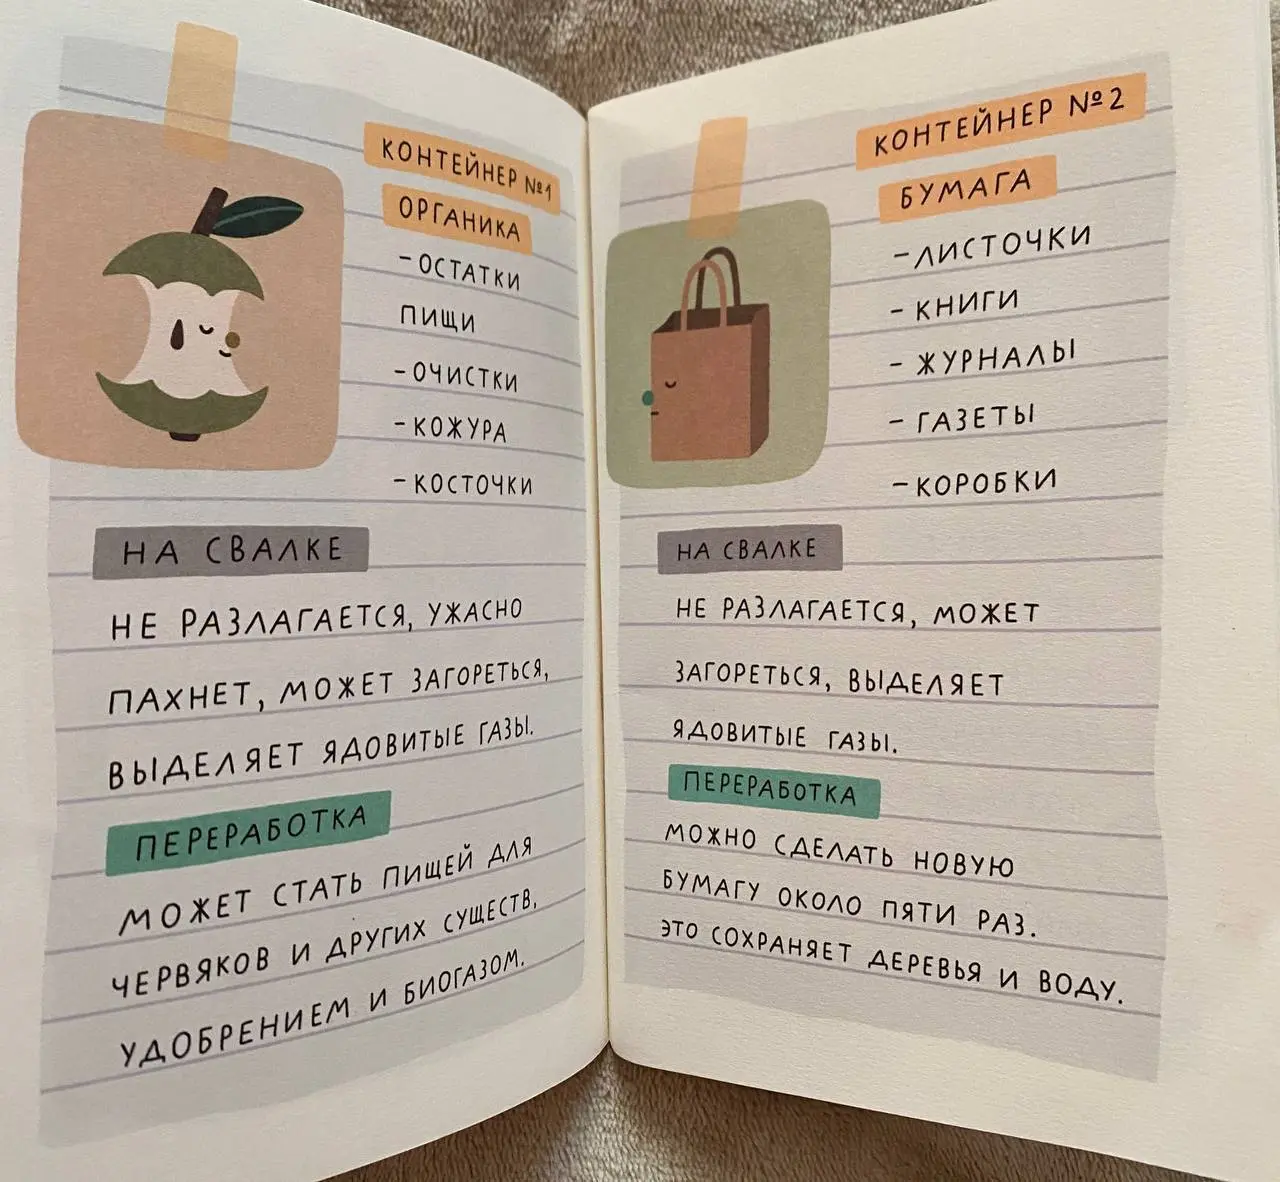 КОНТЕЙНЕР №1
ОРГАНИКА
-ОСТАТКИ
ПИЩИ
-ОЧИСТКИ
-КОЖУРА
-КОСТОЧКИ
НА СВАЛКЕ
НЕ РАЗЛАГАЕТСЯ, УЖАСНО
ПАХНЕТ, МОЖЕТ ЗАГОРЕТЬСЯ,
ВЫДЕЛЯЕТ ЯДОВИТЫЕ ГАЗЫ.
ПЕРЕРАБОТКА
МОЖЕТ СТАТЬ ПИЩЕЙ ДЛЯ
ЧЕРВЯКОВ И ДРУГИХ СУЩЕСТВ,
УДОБРЕНИЕМ И БИОГАЗОМ.
КОНТЕЙНЕР №2
БУМАГА
-ЛИСТОЧКИ
- КНИГИ
- ЖУРНАЛЫ
- ГАЗЕТЫ
- КОРОБКИ
НА СВАЛКЕ
НЕ РАЗЛАГАЕТСЯ, МОЖЕТ
ЗАГОРЕТЬСЯ, ВЫДЕЛЯЕТ
ЯДОВИТЫЕ ГАЗЫ.
ПЕРЕРАБОТКА
МОЖНО СДЕЛАТЬ НОВУЮ
БУМАГУ ОКОЛО ПЯТИ РАЗ.
ЭТО СОХРАНЯЕТ ДЕРЕВЬЯ И ВОДУ.